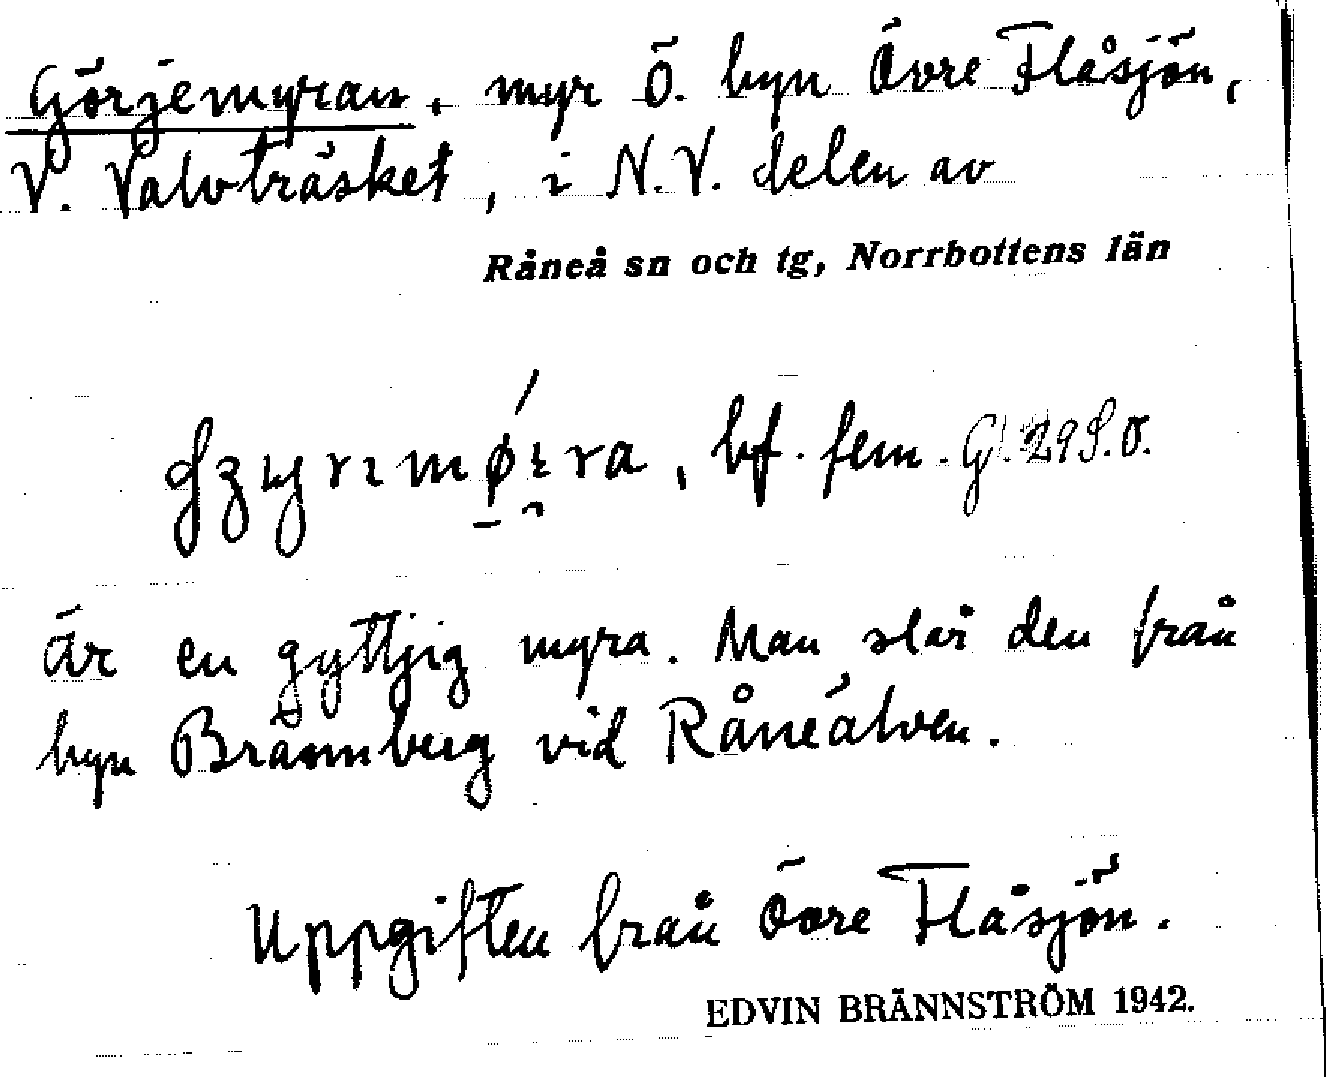 Görjemyran, myr Ö. byn Övre Flåsjön,
V. Valvträsket, i N.V. delen av
Råneå sn och tg, Norrbottens län
bf. fem. Gl. 29 S.Ö.
är en gyttjig myra. Man slår den från
byn Brännberg vid Råneälven.
Uppgiften från Övre Flåsjön.
EDVIN BRÄNNSTRÖM 1942.